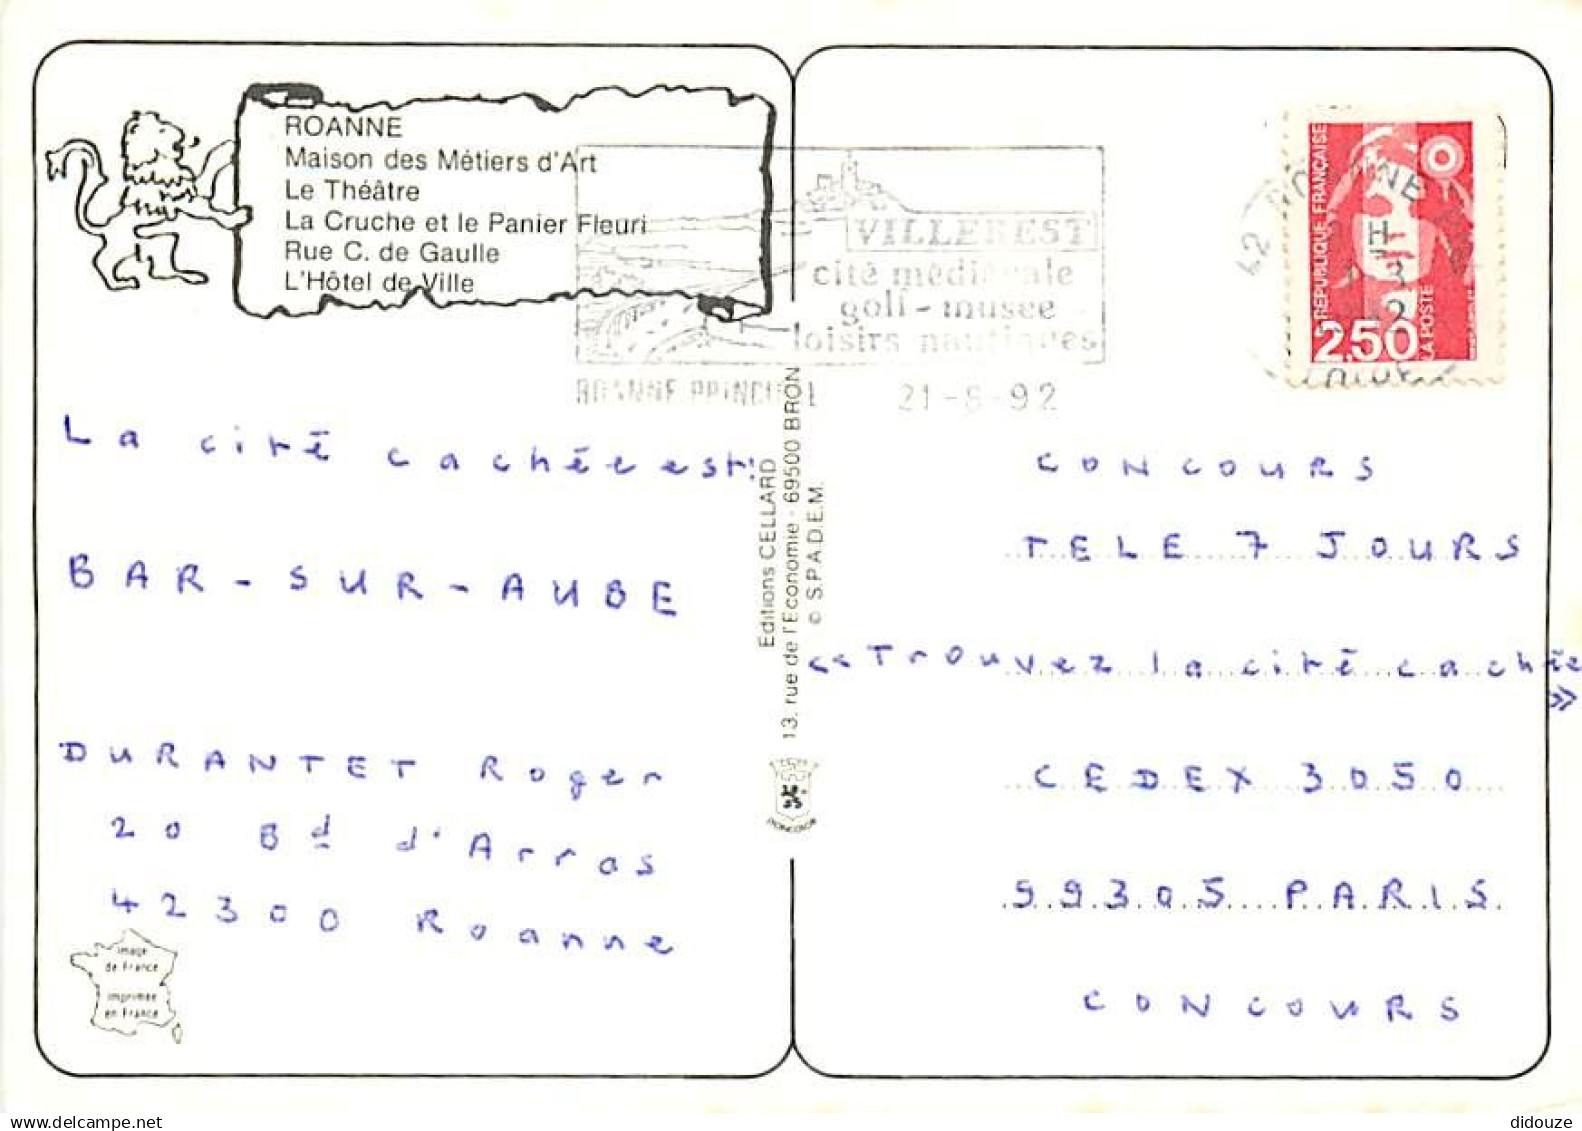 ROANNE
Maison des Métiers d'Art
Le Théâtre
La Cruche et le Panier Fleuri
Rue C. de Gaulle
L'Hôtel de Ville
VILLEREST
cité médiévale
golf - musée
loisirs nautiques
ROANNE PRINCIPAL 21-8-92
RÉPUBLIQUE FRANÇAISE
2,50
LA POSTE
La cité cachée est:
BAR-SUR-AUBE
DURANTET Roger
20 Bd d'Arras
42300 Roanne
image
de France
imprimée
en France
Editions CELLARD
13, rue de l'Economie - 69500 BRON
© S.P.A.D.E.M.
CONCOURS
TELE 7 JOURS
<<Trouvez la cité cachée
>>
CEDEX 3050
99305 PARIS
CONCOURS
didouze